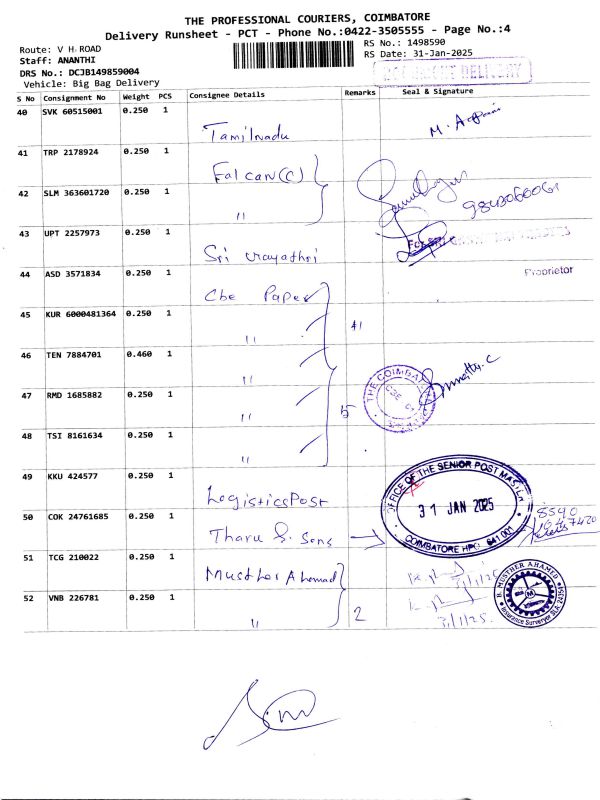 THE PROFESSIONAL COURIERS, COIMBATORE
Delivery Runsheet - PCT - Phone No.:0422-3505555 - Page No.:4
Route: V H ROAD
RS No.: 1498590
Staff: ANANTHI
RS Date: 31-Jan-2025
DRS No.: DCJB149859004
Vehicle: Big Bag Delivery
DELIVERY
S No Consignment No Weight PCS Consignee Details Remarks Seal & Signature
40 SVK 60515001 0.250 1
Tamilnadu
41 TRP 2178924 0.250 1
Falcan(C)
42 SLM 363601720 0.250 1
"
43 UPT 2257973 0.250 1
Sri
44 ASD 3571834 0.250 1
Proprietor
Cbe Paper
45 KUR 6000481364 0.250 1
"
46 TEN 7884701 0.460 1
"
47 RMD 1685882 0.250 1
"
THE COIMBAT
5
48 TSI 8161634 0.250 1
"
49 KKU 424577 0.250 1
LogisticsPost
OFFICE OF THE SENIOR POST MASTER
31 JAN 2025
COIMBATORE HPO 641 001
50 COK 24761685 0.250 1
Tharu & Sons
8590
51 TCG 210022 0.250 1
Musther Ahamad
31/1/25
B. MUSTHER AHAMED
Insurance Surveyor
52 VNB 226781 0.250 1
"
2
31/1/25